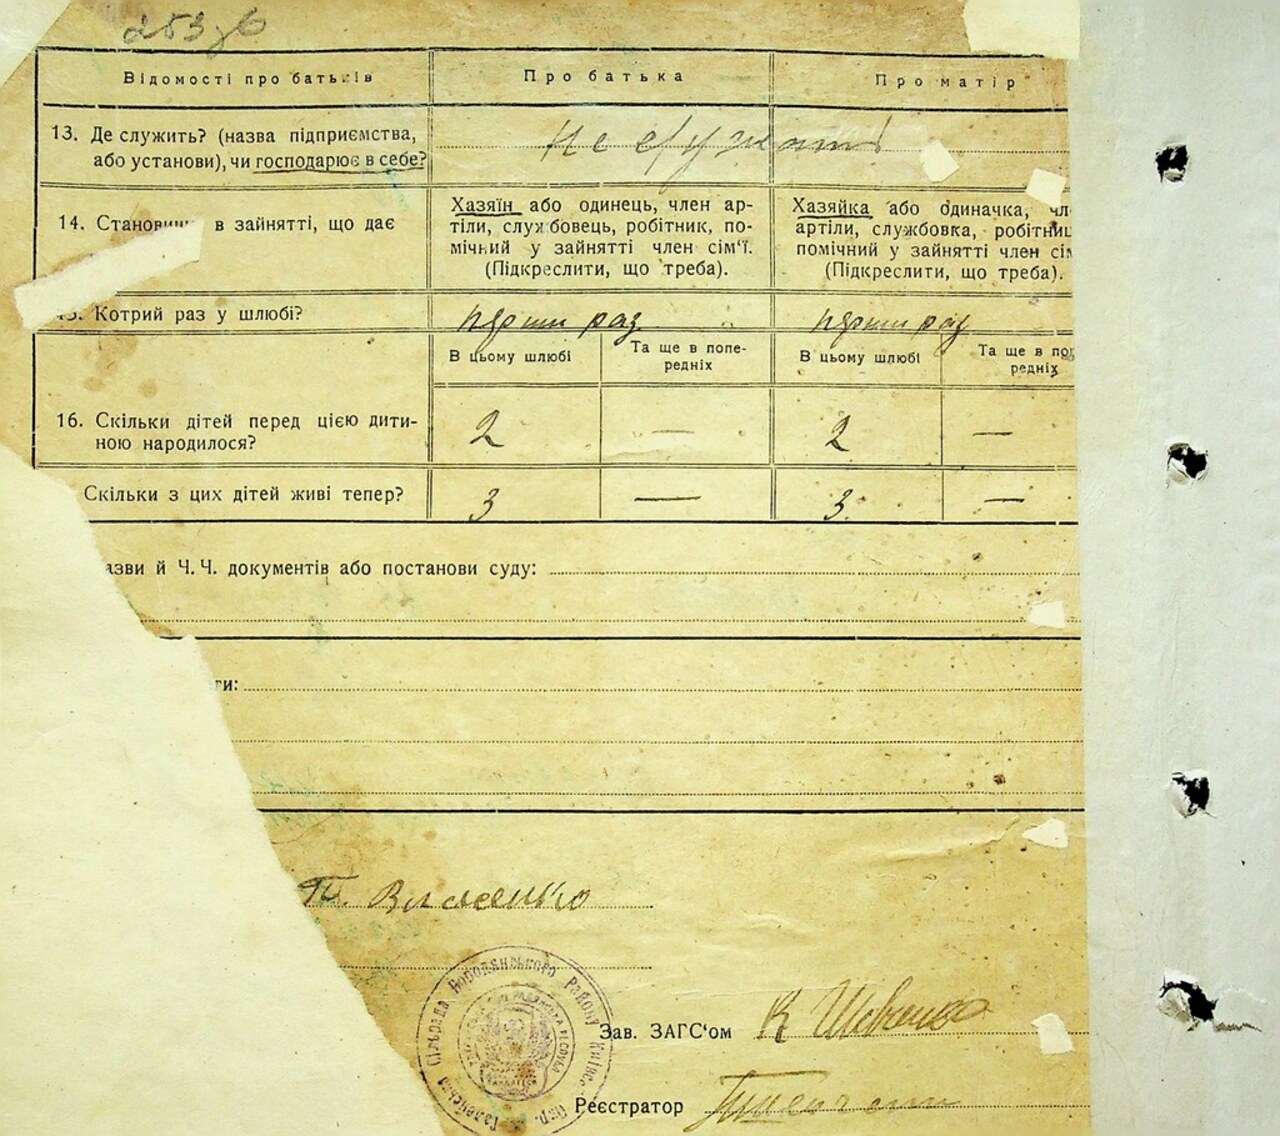 253 зв
Відомості про батьків
Про батька
Про матір
13. Де служить? (назва підприємства,
або установи), чи господарює в себе?
не служат
14. Становищ в зайнятті, що дає
Хазяїн або одинець, член ар-
тіли, службовець, робітник, по-
мічний у зайнятті член сім'ї.
(Підкреслити, що треба).
Хазяйка або одиначка, чл
артіли, службовка, робітниц
помічний у зайнятті член сім
(Підкреслити, що треба).
15. Котрий раз у шлюбі?
перши раз
перши раз
В цьому шлюбі
Та ще в попе-
редніх
В цьому шлюбі
Та ще в поп
редніх
16. Скільки дітей перед цією дити-
ною народилося?
2 — 2 —
Скільки з цих дітей живі тепер?
3 — 3 —
азви й Ч. Ч. документів або постанови суду:
ти:
Власенко
Сільрада Бородянського Району Київс. Окр.
Зав. ЗАГС'ом К Шевченко
Реєстратор